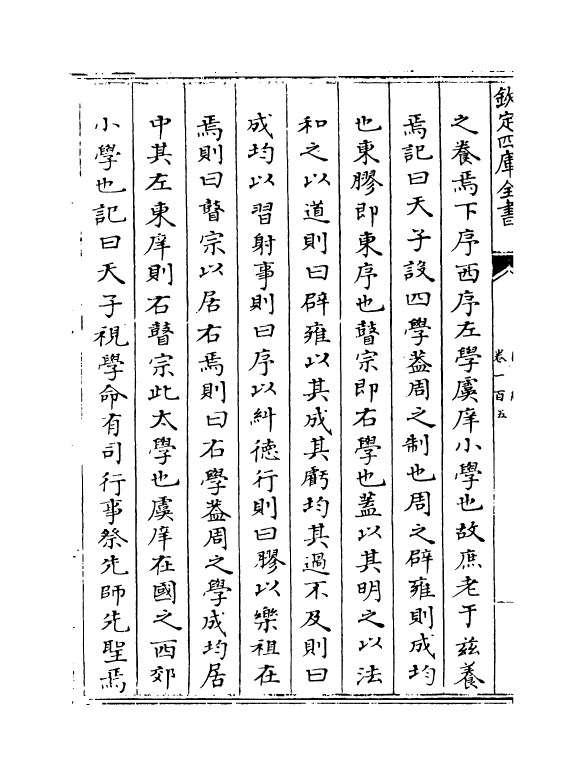 欽定四庫全書
卷一百五
之養焉下序西序左學虞庠小學也故庶老于兹養
焉記曰天子設四學葢周之制也周之辟雍則成均
也東膠即東序也瞽宗即右學也蓋以其明之以法
和之以道則曰辟雍以其成其虧均其過不及則曰
成均以習射事則曰序以糾徳行則曰膠以樂祖在
焉則曰瞽宗以居右焉則曰右學葢周之學成均居
中其左東庠則右瞽宗此太學也虞庠在國之西郊
小學也記曰天子視學命有司行事祭先師先聖焉